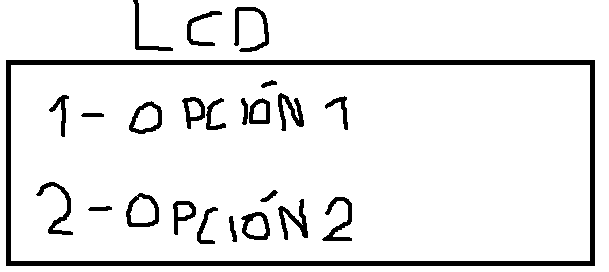 LCD
1-OPCIÓN 1
2-OPCIÓN 2